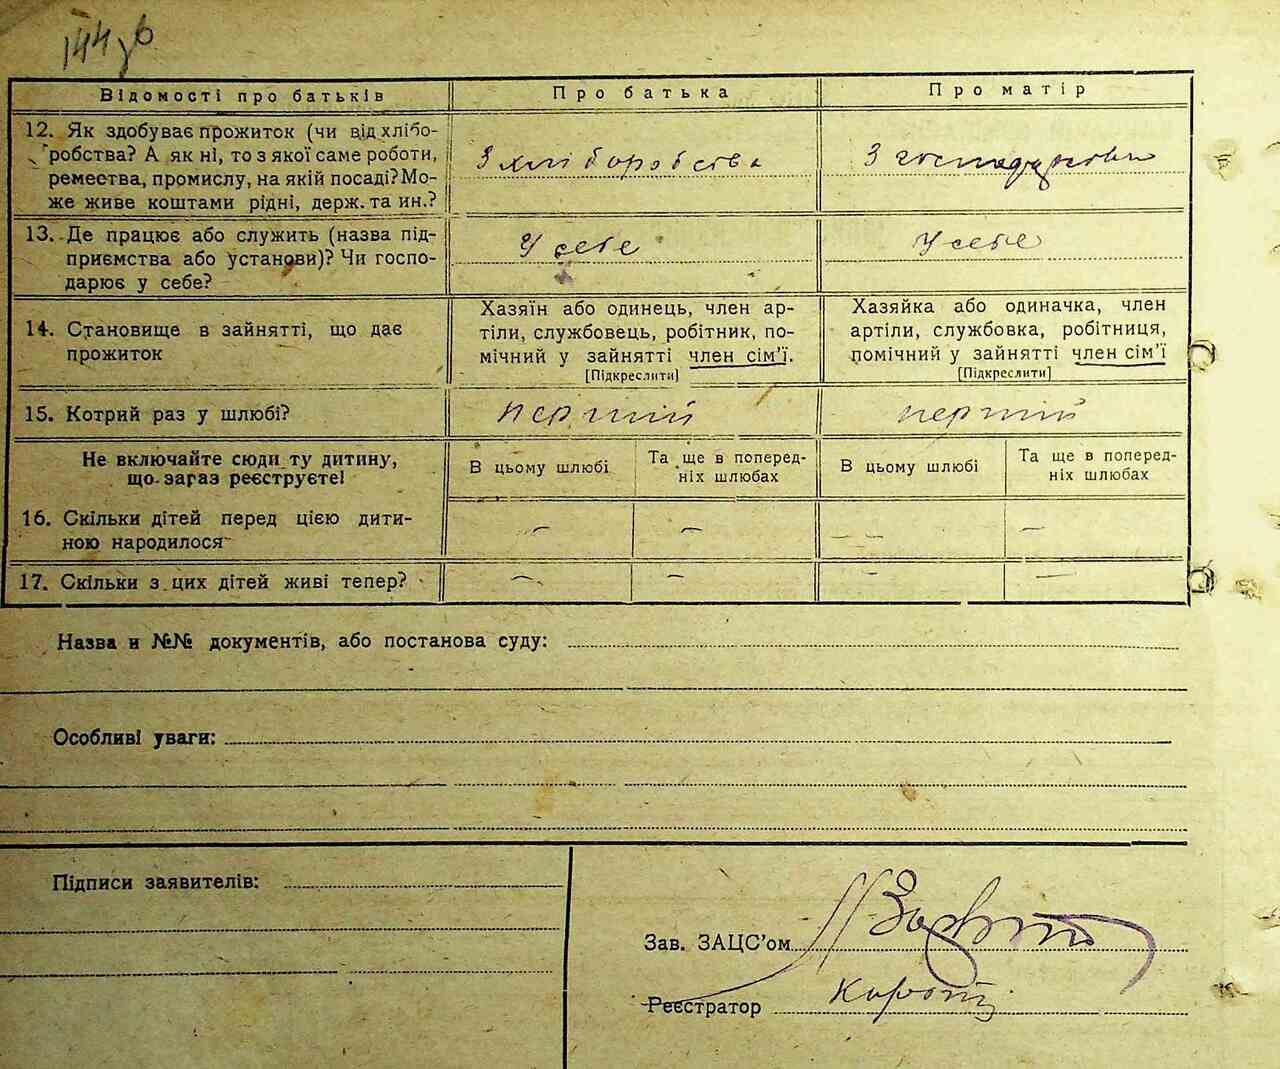 144зв
Відомості про батьків
Про батька
Про матір
12. Як здобуває прожиток (чи від хлібо-
робства? А як ні, то з якої саме роботи,
ремества, промислу, на якій посаді? Мо-
же живе коштами рідні, держ. та ин.?
З хліборобства
З господарства
13. Де працює або служить (назва під-
приємства або установи)? Чи госпо-
дарює у себе?
У себе
У себе
14. Становище в зайнятті, що дає
прожиток
Хазяїн або одинець, член ар-
тіли, службовець, робітник, по-
мічний у зайнятті член сім'ї.
[Підкреслити]
Хазяйка або одиначка, член
артіли, службовка, робітниця,
помічний у зайнятті член сім'ї
[Підкреслити]
15. Котрий раз у шлюбі?
перший
перший
Не включайте сюди ту дитину,
що загаз реєструєте!
В цьому шлюбі
Та ще в поперед-
ніх шлюбах
В цьому шлюбі
Та ще в поперед-
ніх шлюбах
16. Скільки дітей перед цією дити-
ною народилося
— — — —
17. Скільки з цих дітей живі тепер?
— — — —
Назва и №№ документів, або постанова суду:
Особливі уваги:
Підписи заявителів:
Зав. ЗАЦС'ом
Реєстратор